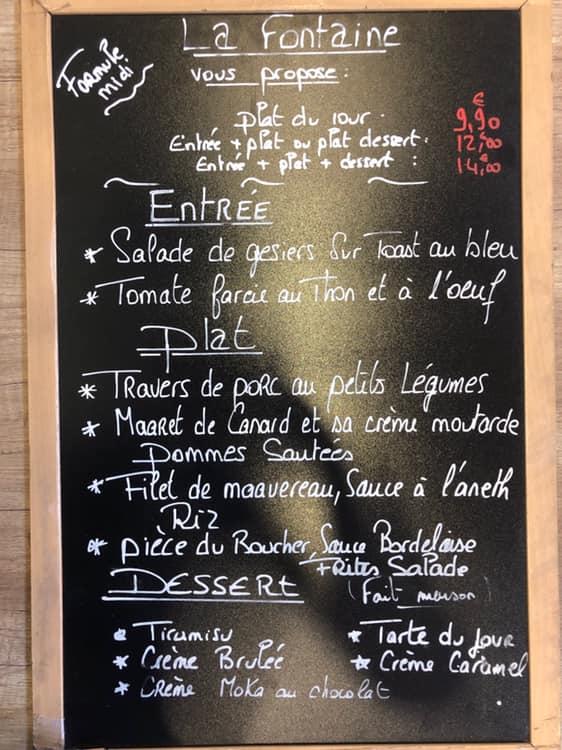 La Fontaine
Formule midi
vous propose :
plat du jour . 9,90 €
Entrée + plat ou plat dessert . 12,00 €
Entrée + plat + dessert : 14,00 €
Entrée
* Salade de gesiers sur Toast au bleu
* Tomate farcie au Thon et à l'oeuf
plat
* Travers de porc au petits Légumes
* Magret de Canard et sa crème moutarde
Pommes Sautées
* Filet de maquereau, Sauce à l'aneth
Riz
* pièce du Boucher, Sauce Bordelaise
+ Frites Salade
DESSERT (Fait maison)
* Tiramisu * Tarte du jour
* Crème Brulée * Crème Caramel
* Crème Moka au chocolat